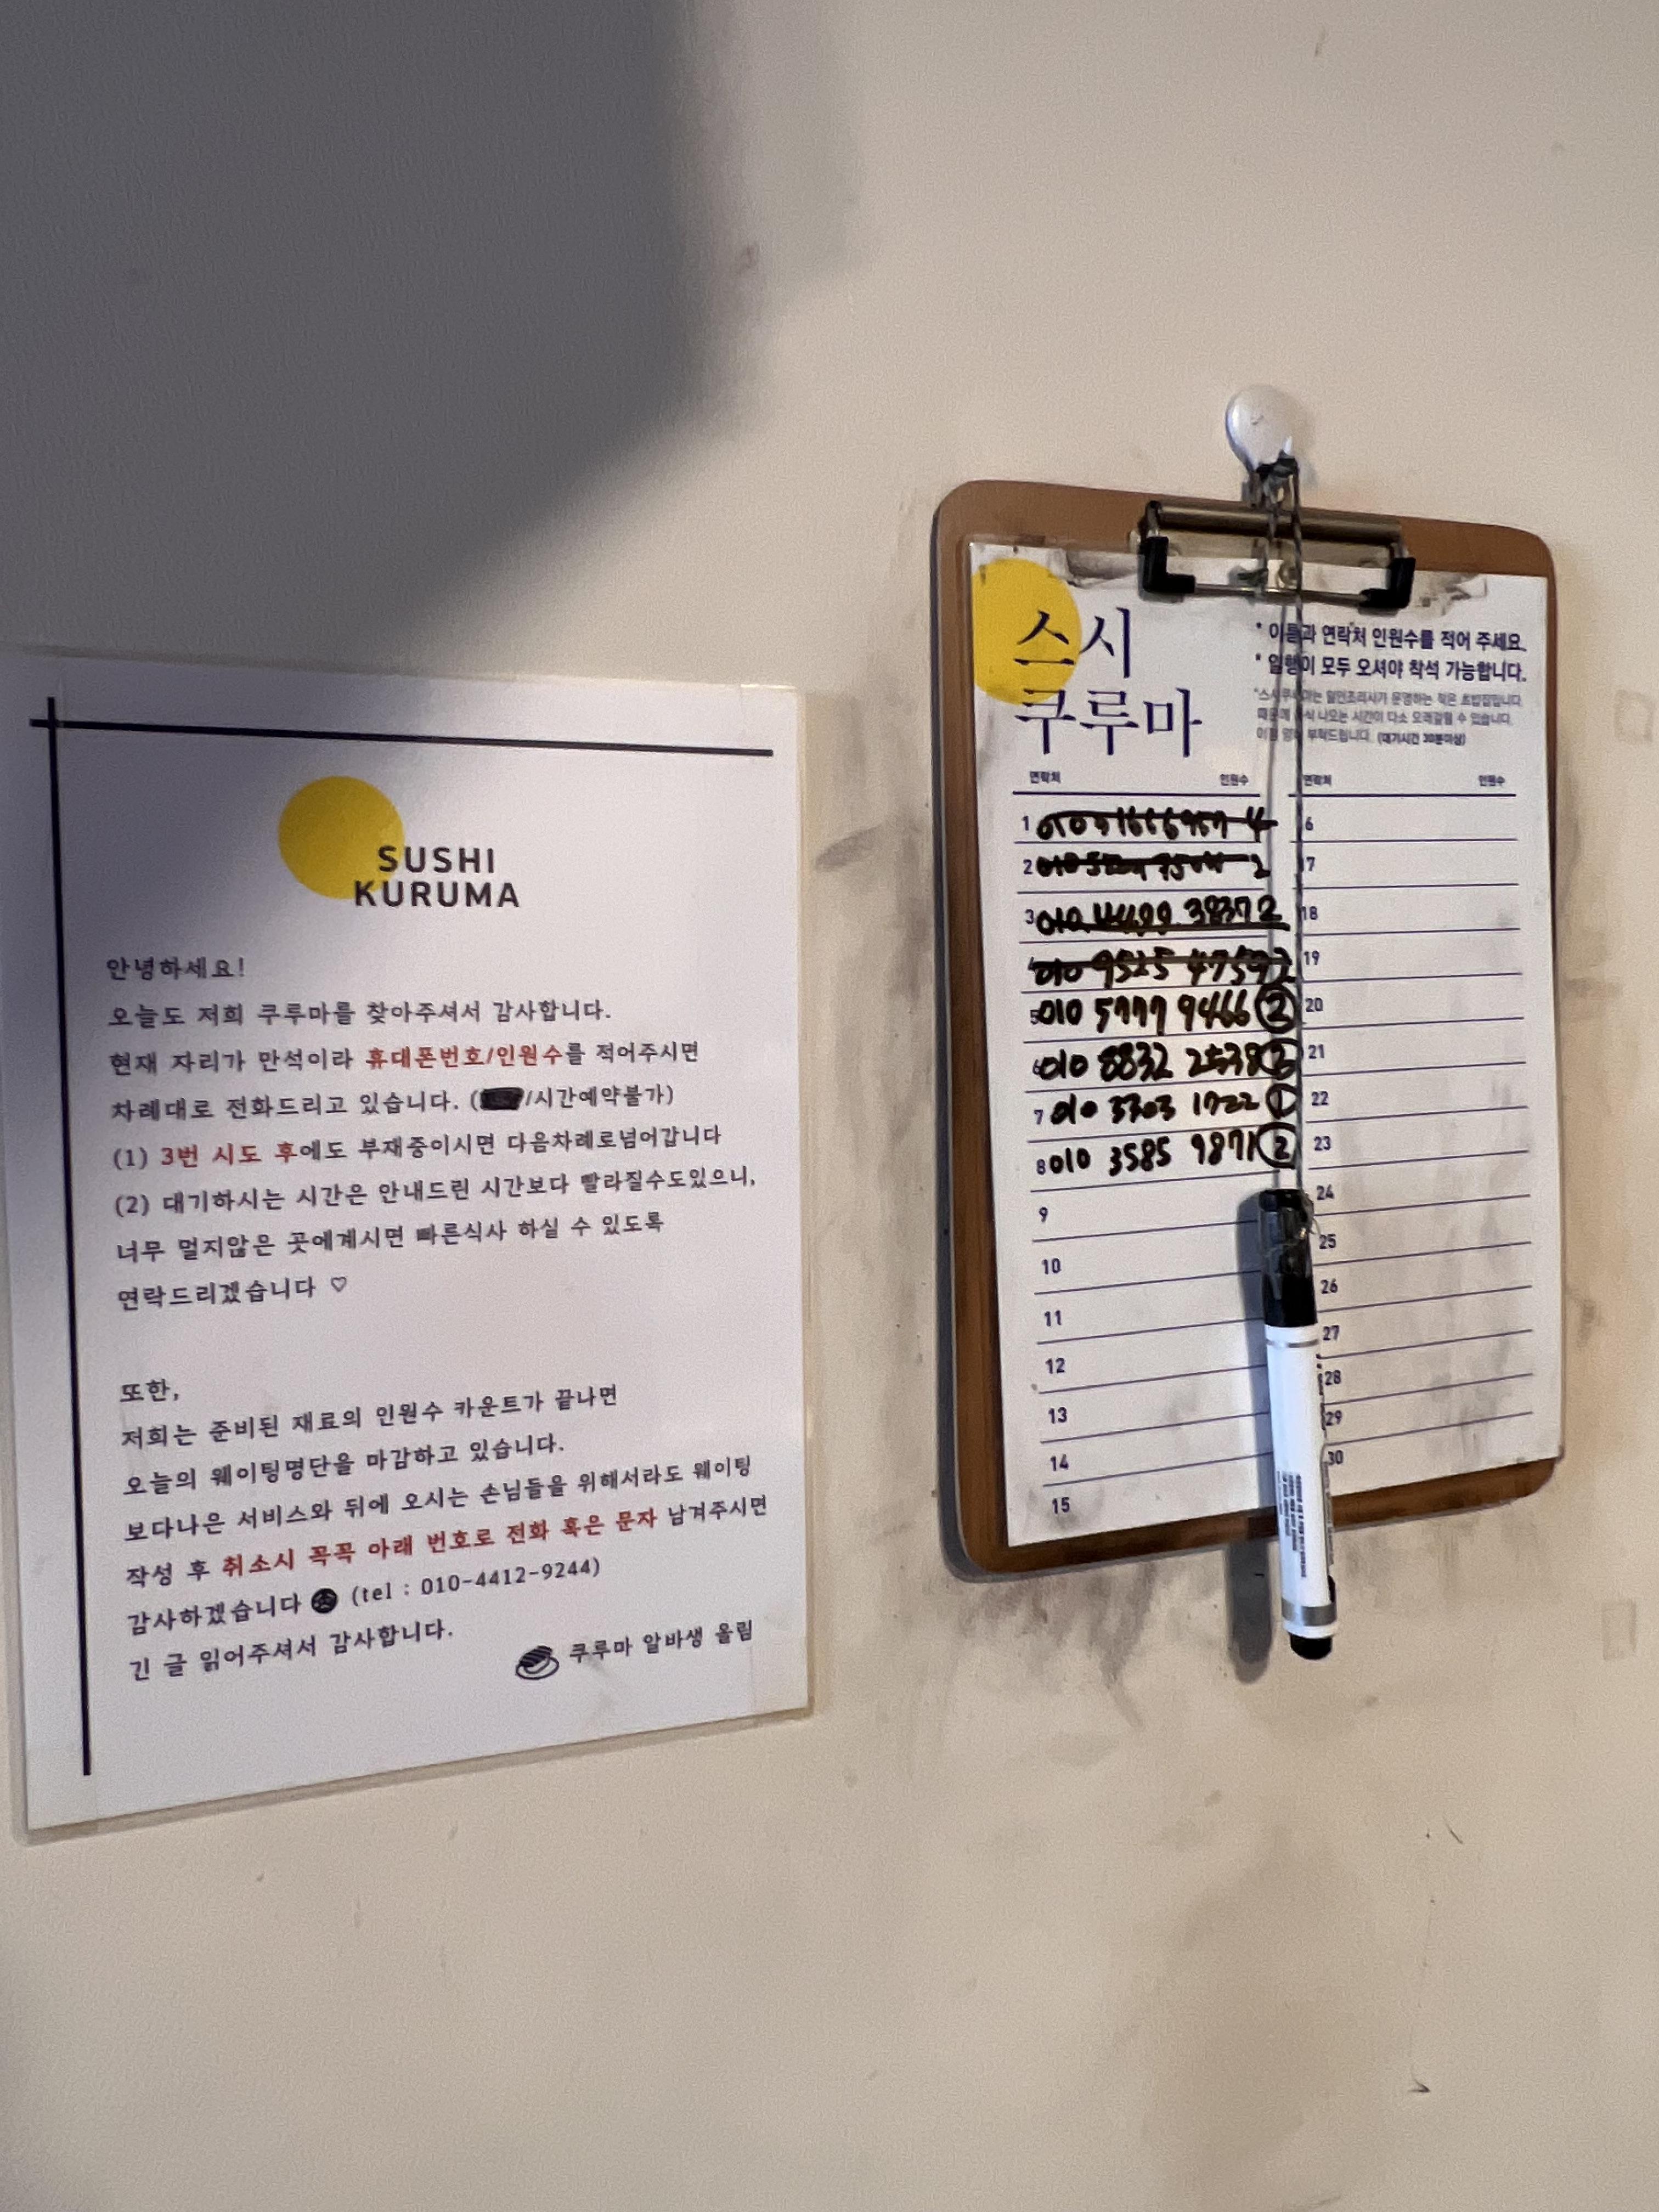 SUSHI
KURUMA
안녕하세요!
오늘도 저희 쿠루마를 찾아주셔서 감사합니다.
현재 자리가 만석이라 휴대폰번호/인원수를 적어주시면
차례대로 전화드리고 있습니다. (/시간예약불가)
(1) 3번 시도 후에도 부재중이시면 다음차례로넘어갑니다
(2) 대기하시는 시간은 안내드린 시간보다 빨라질수도있으니,
너무 멀지않은 곳에계시면 빠른식사 하실 수 있도록
연락드리겠습니다 ♡
또한,
저희는 준비된 재료의 인원수 카운트가 끝나면
오늘의 웨이팅명단을 마감하고 있습니다.
보다나은 서비스와 뒤에 오시는 손님들을 위해서라도 웨이팅
작성 후 취소시 꼭꼭 아래 번호로 전화 혹은 문자 남겨주시면
감사하겠습니다 (tel : 010-4412-9244)
긴 글 읽어주셔서 감사합니다.
쿠루마 알바생 올림
스시
쿠루마
* 이름과 연락처 인원수를 적어 주세요.
* 일행이 모두 오셔야 착석 가능합니다.
1인조리사가 운영하는 작은 초밥집입니다
때문에 음식 나오는 시간이 다소 오래걸릴 수 있습니다.
부탁드립니다. (대기시간 30분이상)
연락처 인원수
1 010 4
2 010 2
3 010 4499 3837 2
010 9525 2
5 010 5777 9466 2
010 8832 2538
7 010 3703 1722 1
8 010 3585 9871 2
9
10
11
12
13
14
15
연락처 인원수
6
17
18
19
20
21
22
23
24
25
26
27
28
29
30